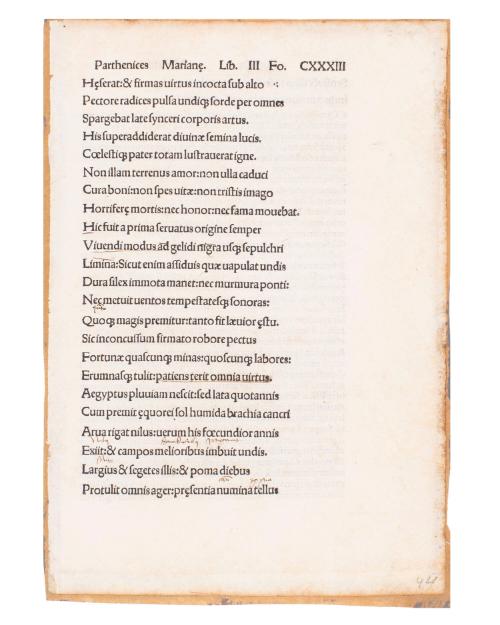 Parthenices Marianę. Lib. III Fo. CXXXIII
Hęserat:& firmas uirtus incocta sub alto
Pectore radices pulsa undiqꝫ sorde per omnes
Spargebat late synceri corporis artus.
His superaddiderat diuinæ semina lucis.
Cœlestiqꝫ pater totam lustrauerat igne.
Non illam terrenus amor:non ulla caduci
Cura boni:non spes uitæ:non tristis imago
Horriferę mortis:nec honor:nec fama mouebat.
Hic fuit a prima seruatus origine semper
Viuendi modus ad gelidi nigra usqꝫ sepulchri
Limina:Sicut enim assiduis quæ uapulat undis
Dura silex immota manet:nec murmura ponti:
Nec metuit uentos tempestatesqꝫ sonoras:
Quoqꝫ magis premitur:tanto fit læuior ęstu.
Sic inconcussum firmato robore pectus
Fortunæ quascunqꝫ minas:quoscunqꝫ labores:
Erumnasqꝫ tulit:patiens terit omnia uirtus.
Aegyptus pluuiam nescit:sed lata quotannis
Cum premit ęquorei sol humida brachia cancri
Arua rigat nilus:uerum his fœcundior annis
Exiit:& campos melioribus imbuit undis.
Largius & segetes illis:& poma diebus
Protulit omnis ager:pręsentia numina tellus